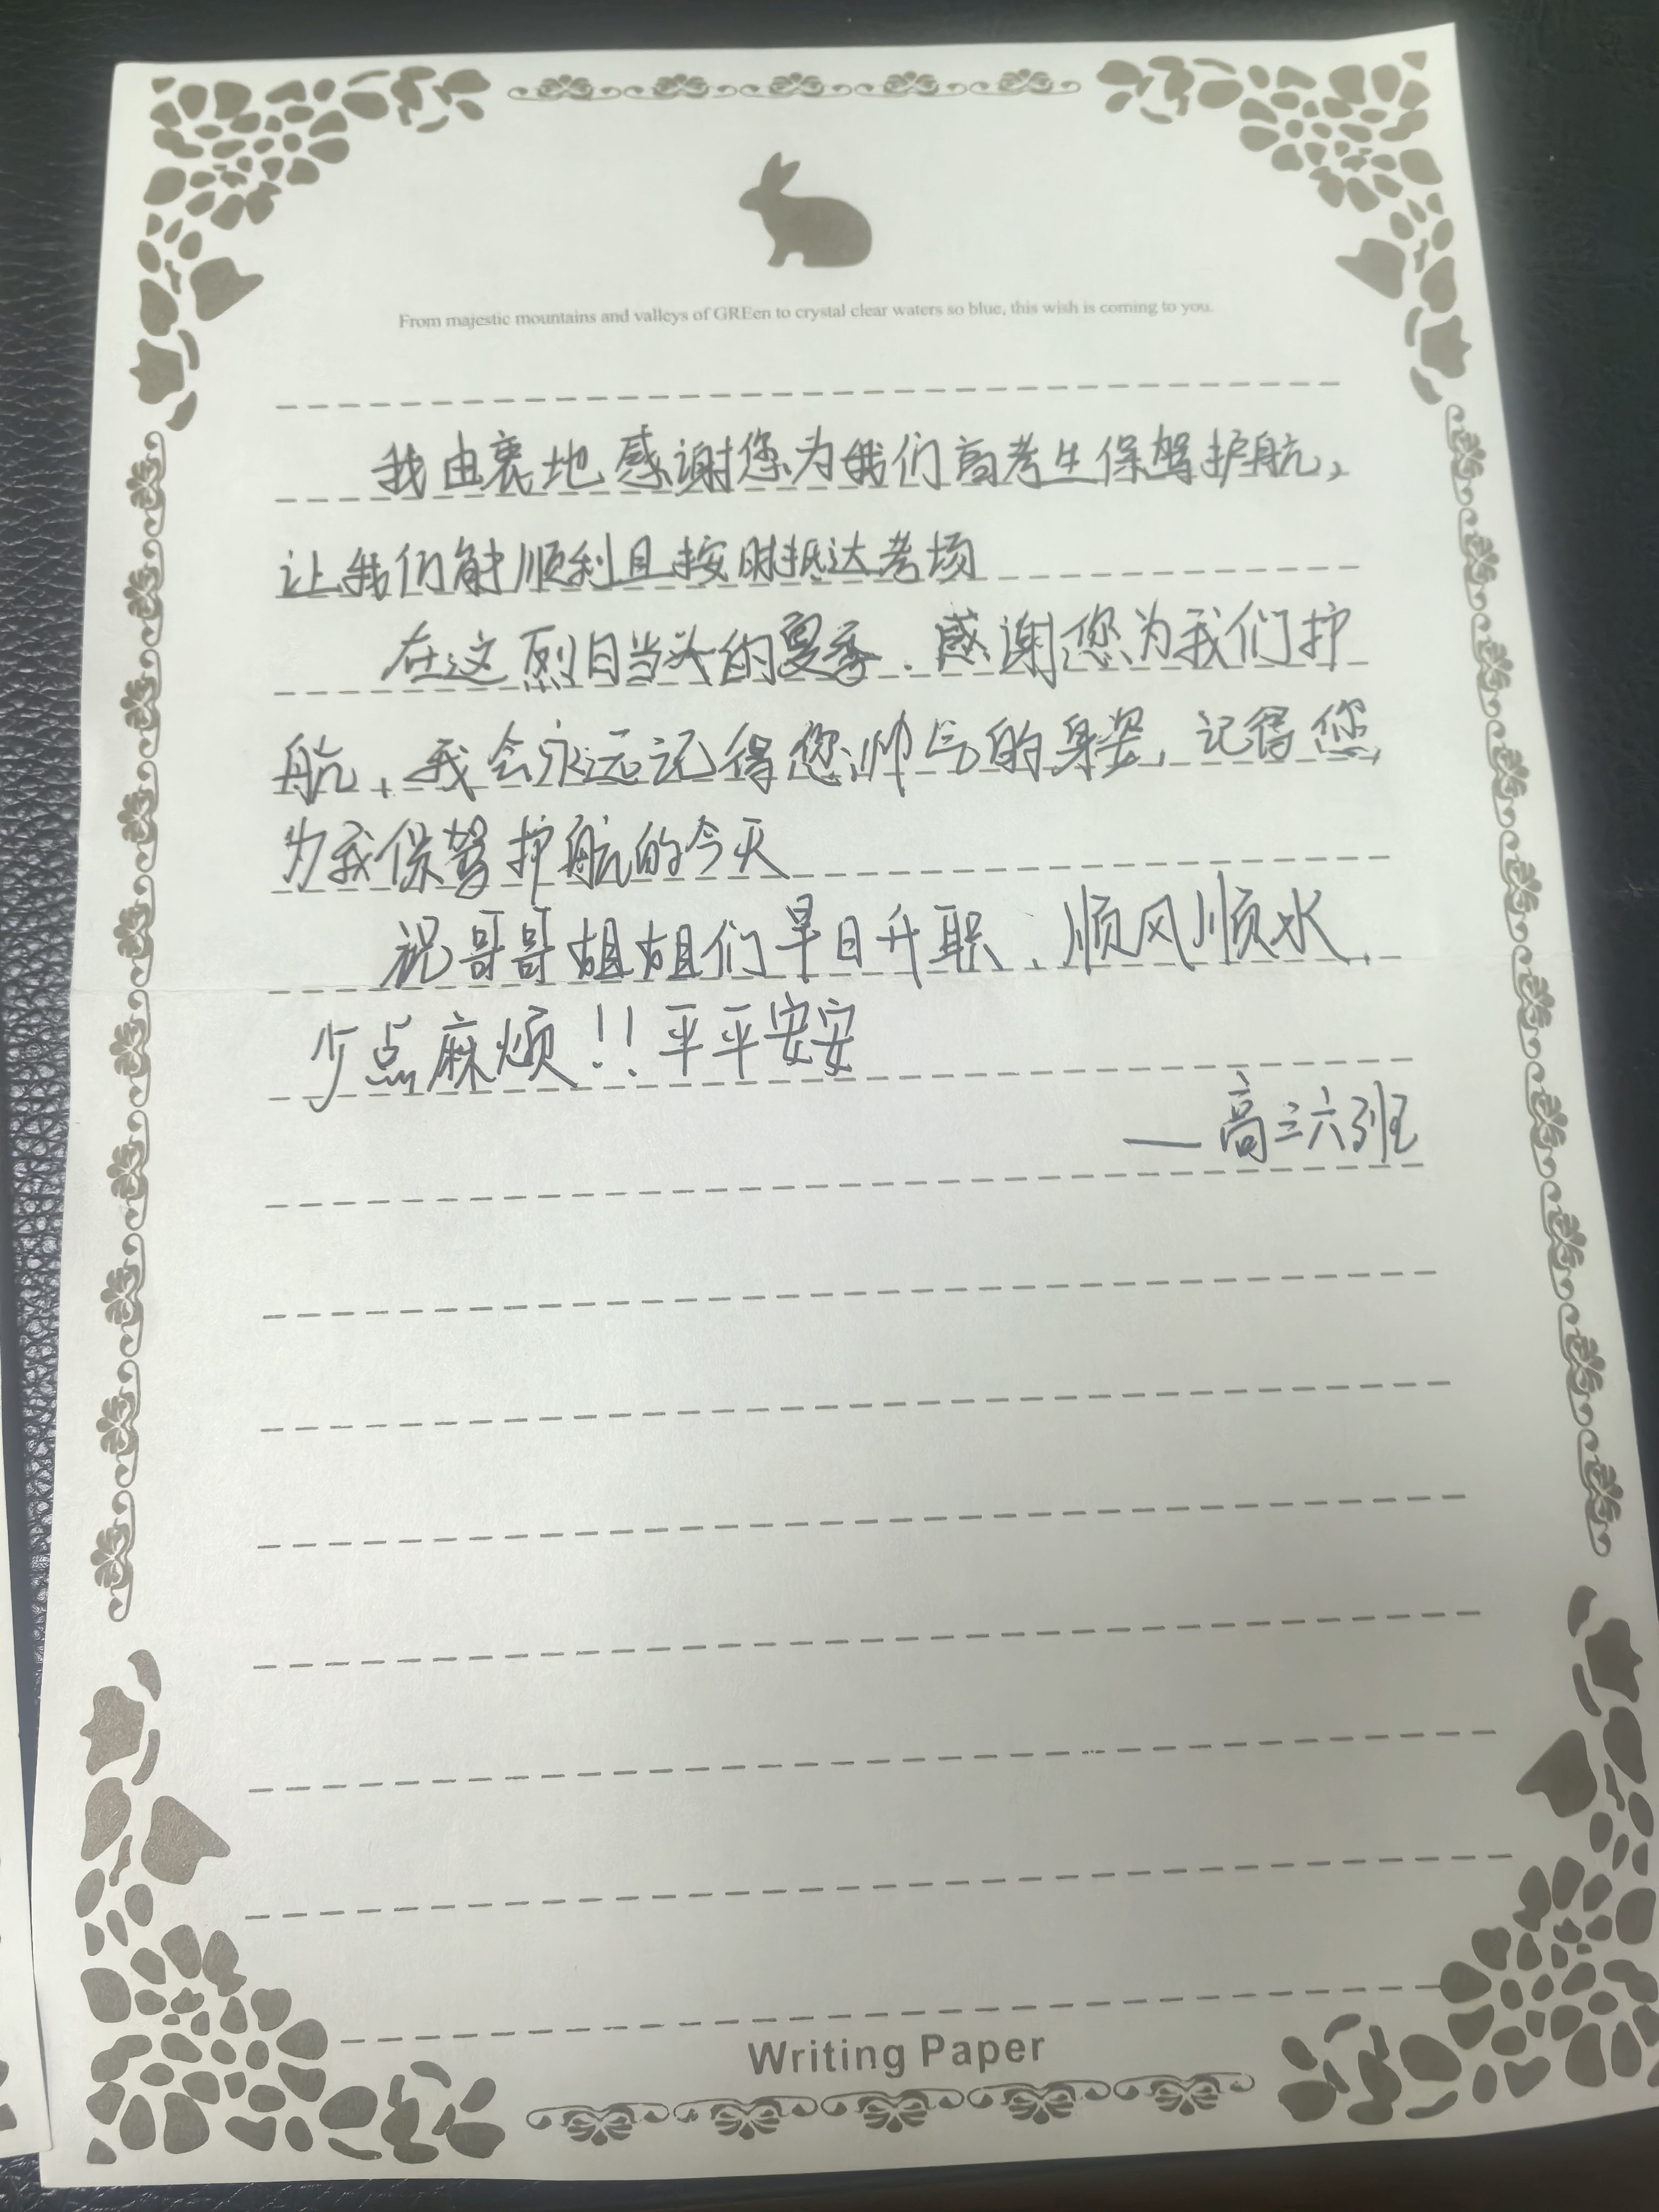 From majestic mountains and valleys of GREen to crystal clear waters so blue, this wish is coming to you.
我由衷地感谢您为我们高考生保驾护航,
让我们能顺利且按时抵达考场
在这烈日当头的夏季,感谢您为我们护
航,我会永远记得您帅气的身姿,记得您,
为我保驾护航的今天
祝哥哥姐姐们早日升职,顺风顺水,
少点麻烦!!平平安安
—高三六班
Writing Paper